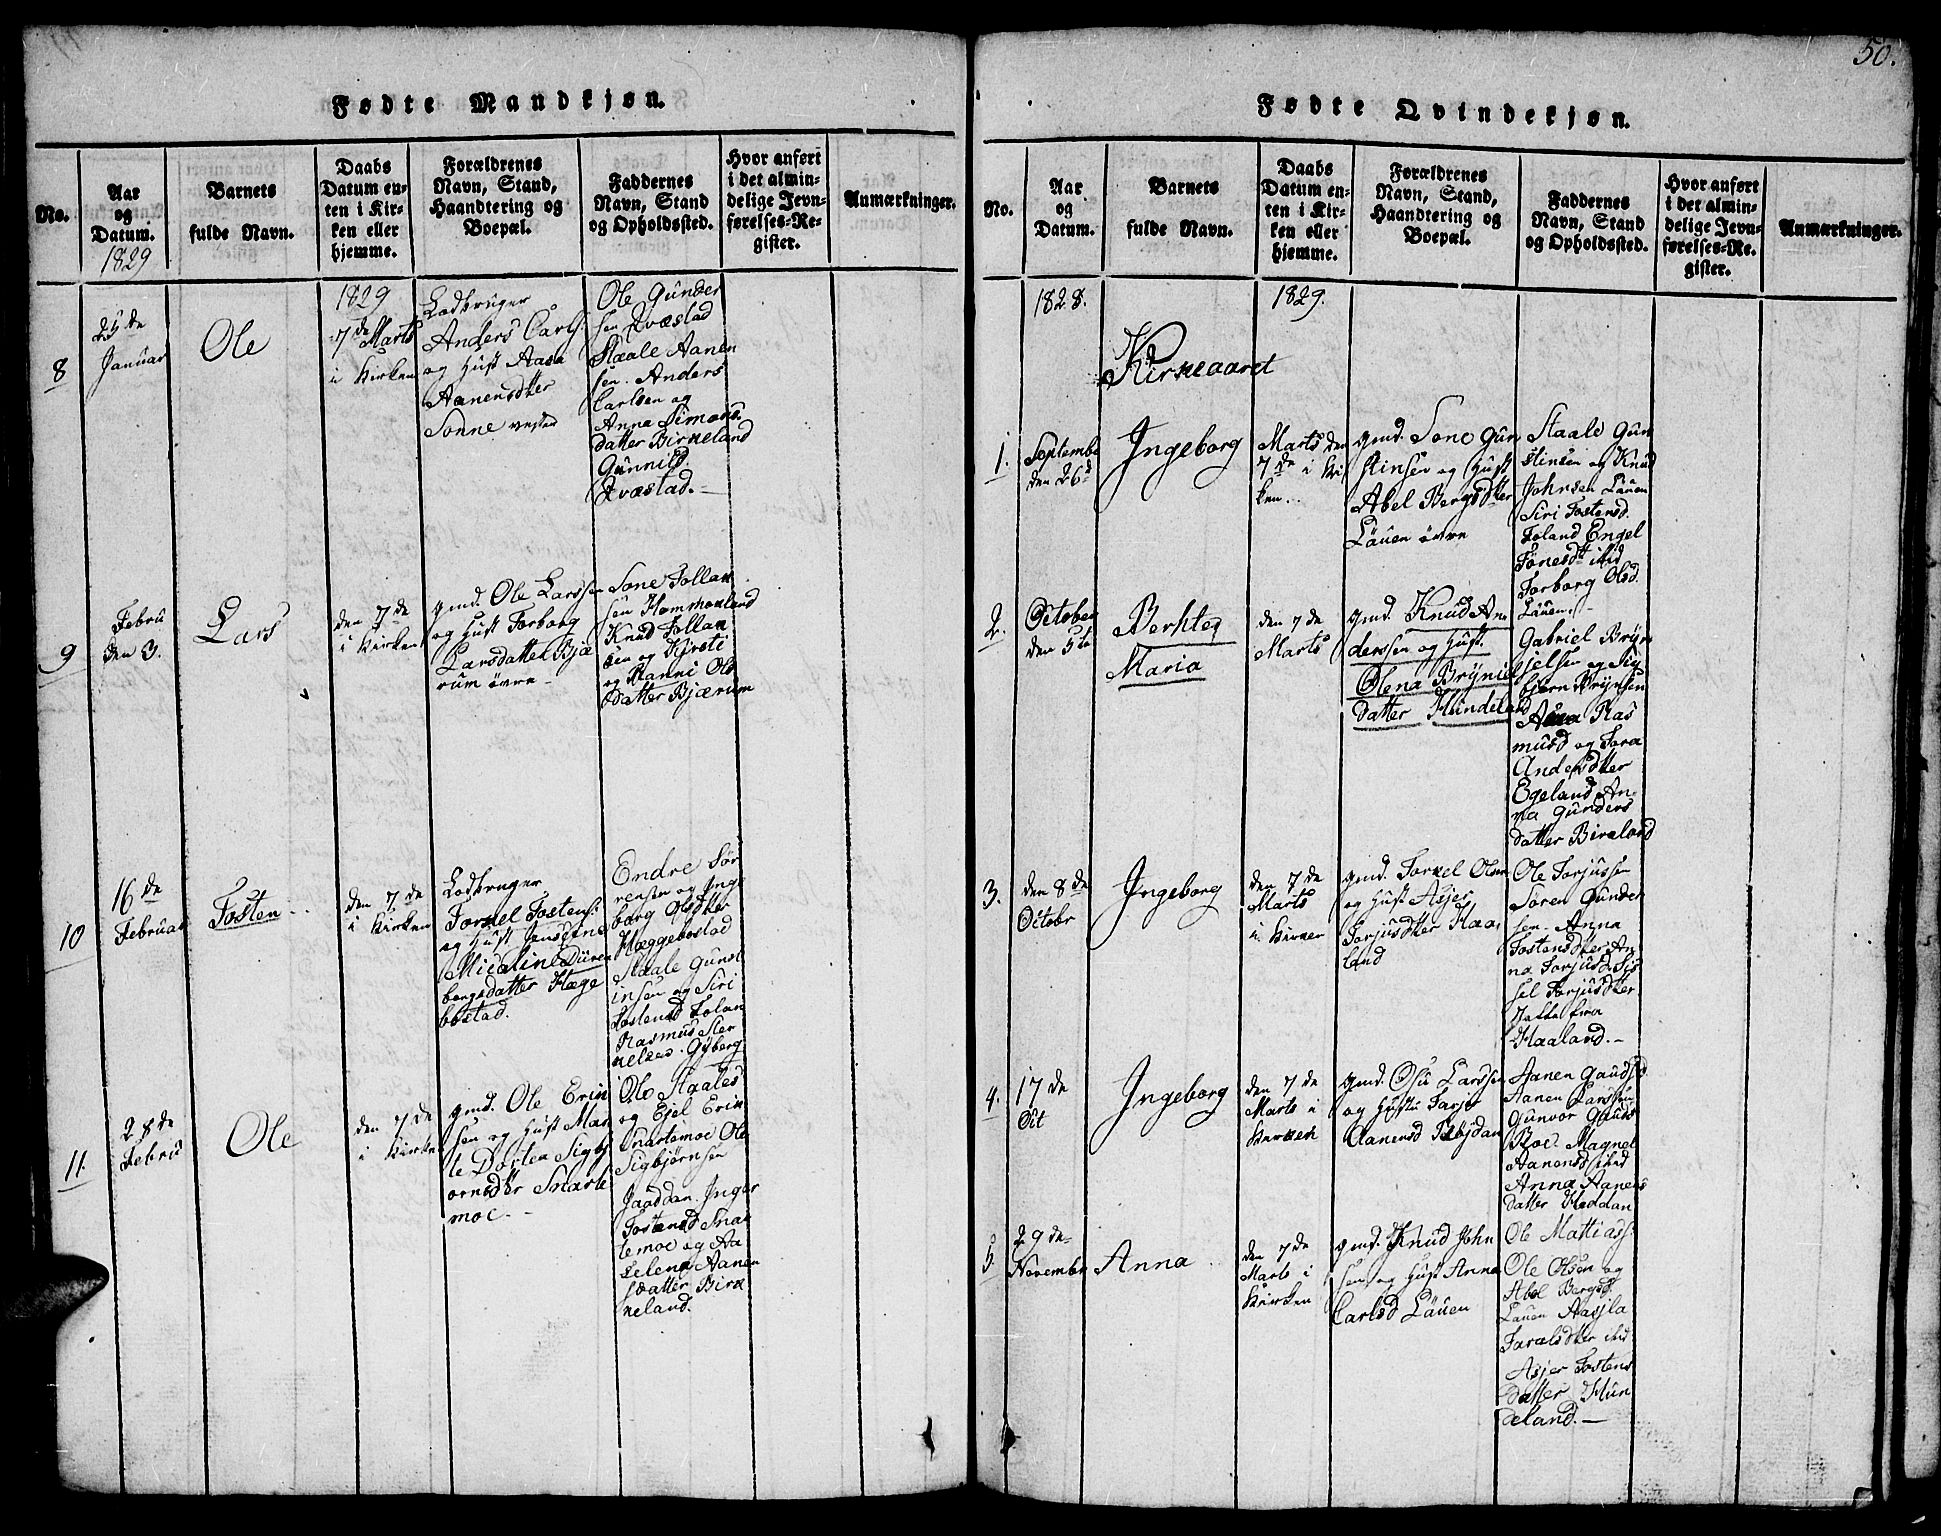 Fødte Mandkjøn.
No.
Aar
og
Datum.
1829
Barnets
fulde Navn.
Daabs
Datum en-
ten i Kir-
ken eller
hjemme.
Forældrenes
Navn, Stand,
Haandtering og
Boepæl.
Faddernes
Navn, Stand
og Opholdssted.
Hvor anført
i det almin-
delige Jevn-
førelses-Re-
gister.
Anmærkninger.
8
25de
Januar
Ole
1829
7de Marts
i Kirken
Lodbruger
Anders Carls.
og Hust Aasa
Aanensdtter
Sonne vesten
Ole Gunder
sen Qvæstad
Staale Aanen
sen. Anders
Carlsen og
Anna Simons
datter Birkeland
Gunnild
Qvæstad.-
9
Febru
den 3.
Lars
den 7de
i Kirken
gmd. Ole Larssen
og Hust Torborg
Larsdatter Bjæ
rum övre-
Sone Tollak
sen Hommeland
Knud Tollak
sen og Kjrsti
og Ranni Ols
datter Bjærum
10
16de
Februar
Tosten
den 7de
i Kirken
Lodbruger
Torkel Tostens.
og Hust Jensene
Micaline Düren
bergsdatter Hæge
bostad.
Endre Sör
rensen og Inge
borg Olsdtter
Heggebostad
Staale Gunst
insen og Siri
Tostensd Tolan
Rasmus Ster
kelsen. Gyberg
11.
28de
Febru
Ole
den 7de
i Kirken
gmd. Ole Erik
sen og Hust Mar
te Dorten Sigbj
ornsdtr Snarte
moe.-
Ole Staales
og Ejel Erik
Snartemoe Ole
Sigbjörnsen
Jaaddan. Inger
Tostensd Snar
temoe og Aa
Lelena Aanen
sdatter Birk
neland.
50.
Fødte Qvindekjøn.
No.
Aar
og
Datum.
Barnets
fulde Navn.
Daabs
Datum en-
ten i Kir-
ken eller
hjemme.
Forældrenes
Navn, Stand,
Haandtering og
Boepæl.
Faddernes
Navn, Stand
og Opholdssted.
Hvor anført
i det almin-
delige Jevn-
førelses-Re-
gister.
Anmærkninger.
1828.
1829.
Kirkeaaret
1.
Septembr
den 26d
Ingeborg
Marts den
7de i Kir
ken..
gmd. Sone Gun
stinsen og Hust
Abel Bergsdter
Läuen övre
Staale Gun
stinsen og Knud
Johnsen Läuen
Siri Tostensd.
Toland Engel
Tönesdt ibid
Torborg Olsd.
Läuen.-
2.
October
den 5te
Berhtea
Maria
den 7de
Marts
gmd. Knud An
derssen og Hust.
Olena Brÿniels
datter Hundeland
Gabriel Brÿn
jelsen og Sig
bjørn Brÿnsen
Anna Ras
musd og Tora
Andersdtter
Egeland An-
na Gunders
datter Birkeland
3.
den 8de
Octobr
Ingeborg
den 7de
Marts
i Kirken
gmd. Torkel Olsen
og Hust Asjer
Torjusdtter Haa
land
Ole Torjussen
Sören Gunder
sen. Anna
Tostensdtter An
na Torjusd. Sis
sel Torjusdtter
Jatte fra
Haaland.-
4.
17de
Oct
Ingeborg
den 7de
Marts i
Kirken
gmd. Osu Larssen
og Hustu Tarjer
Aanensd
Aanen Gaudsd
Aanen Larssen
Gunvor Gauds
Roe. Magnel
Aanensd ibid
Anna Aanens
datter Heddan
5.
29de
Novembr
Anna
den 7de
Marts i
Kirken
gmd. Knud John
sen og Hust Anna
Carlsd Läuen
Ole Mattiass.
Ole Olsen og
Abel Bergsd.
Läuen Aasjla
Taralsdtter ibid
Asjer Tostens
datter Hun
deland.-